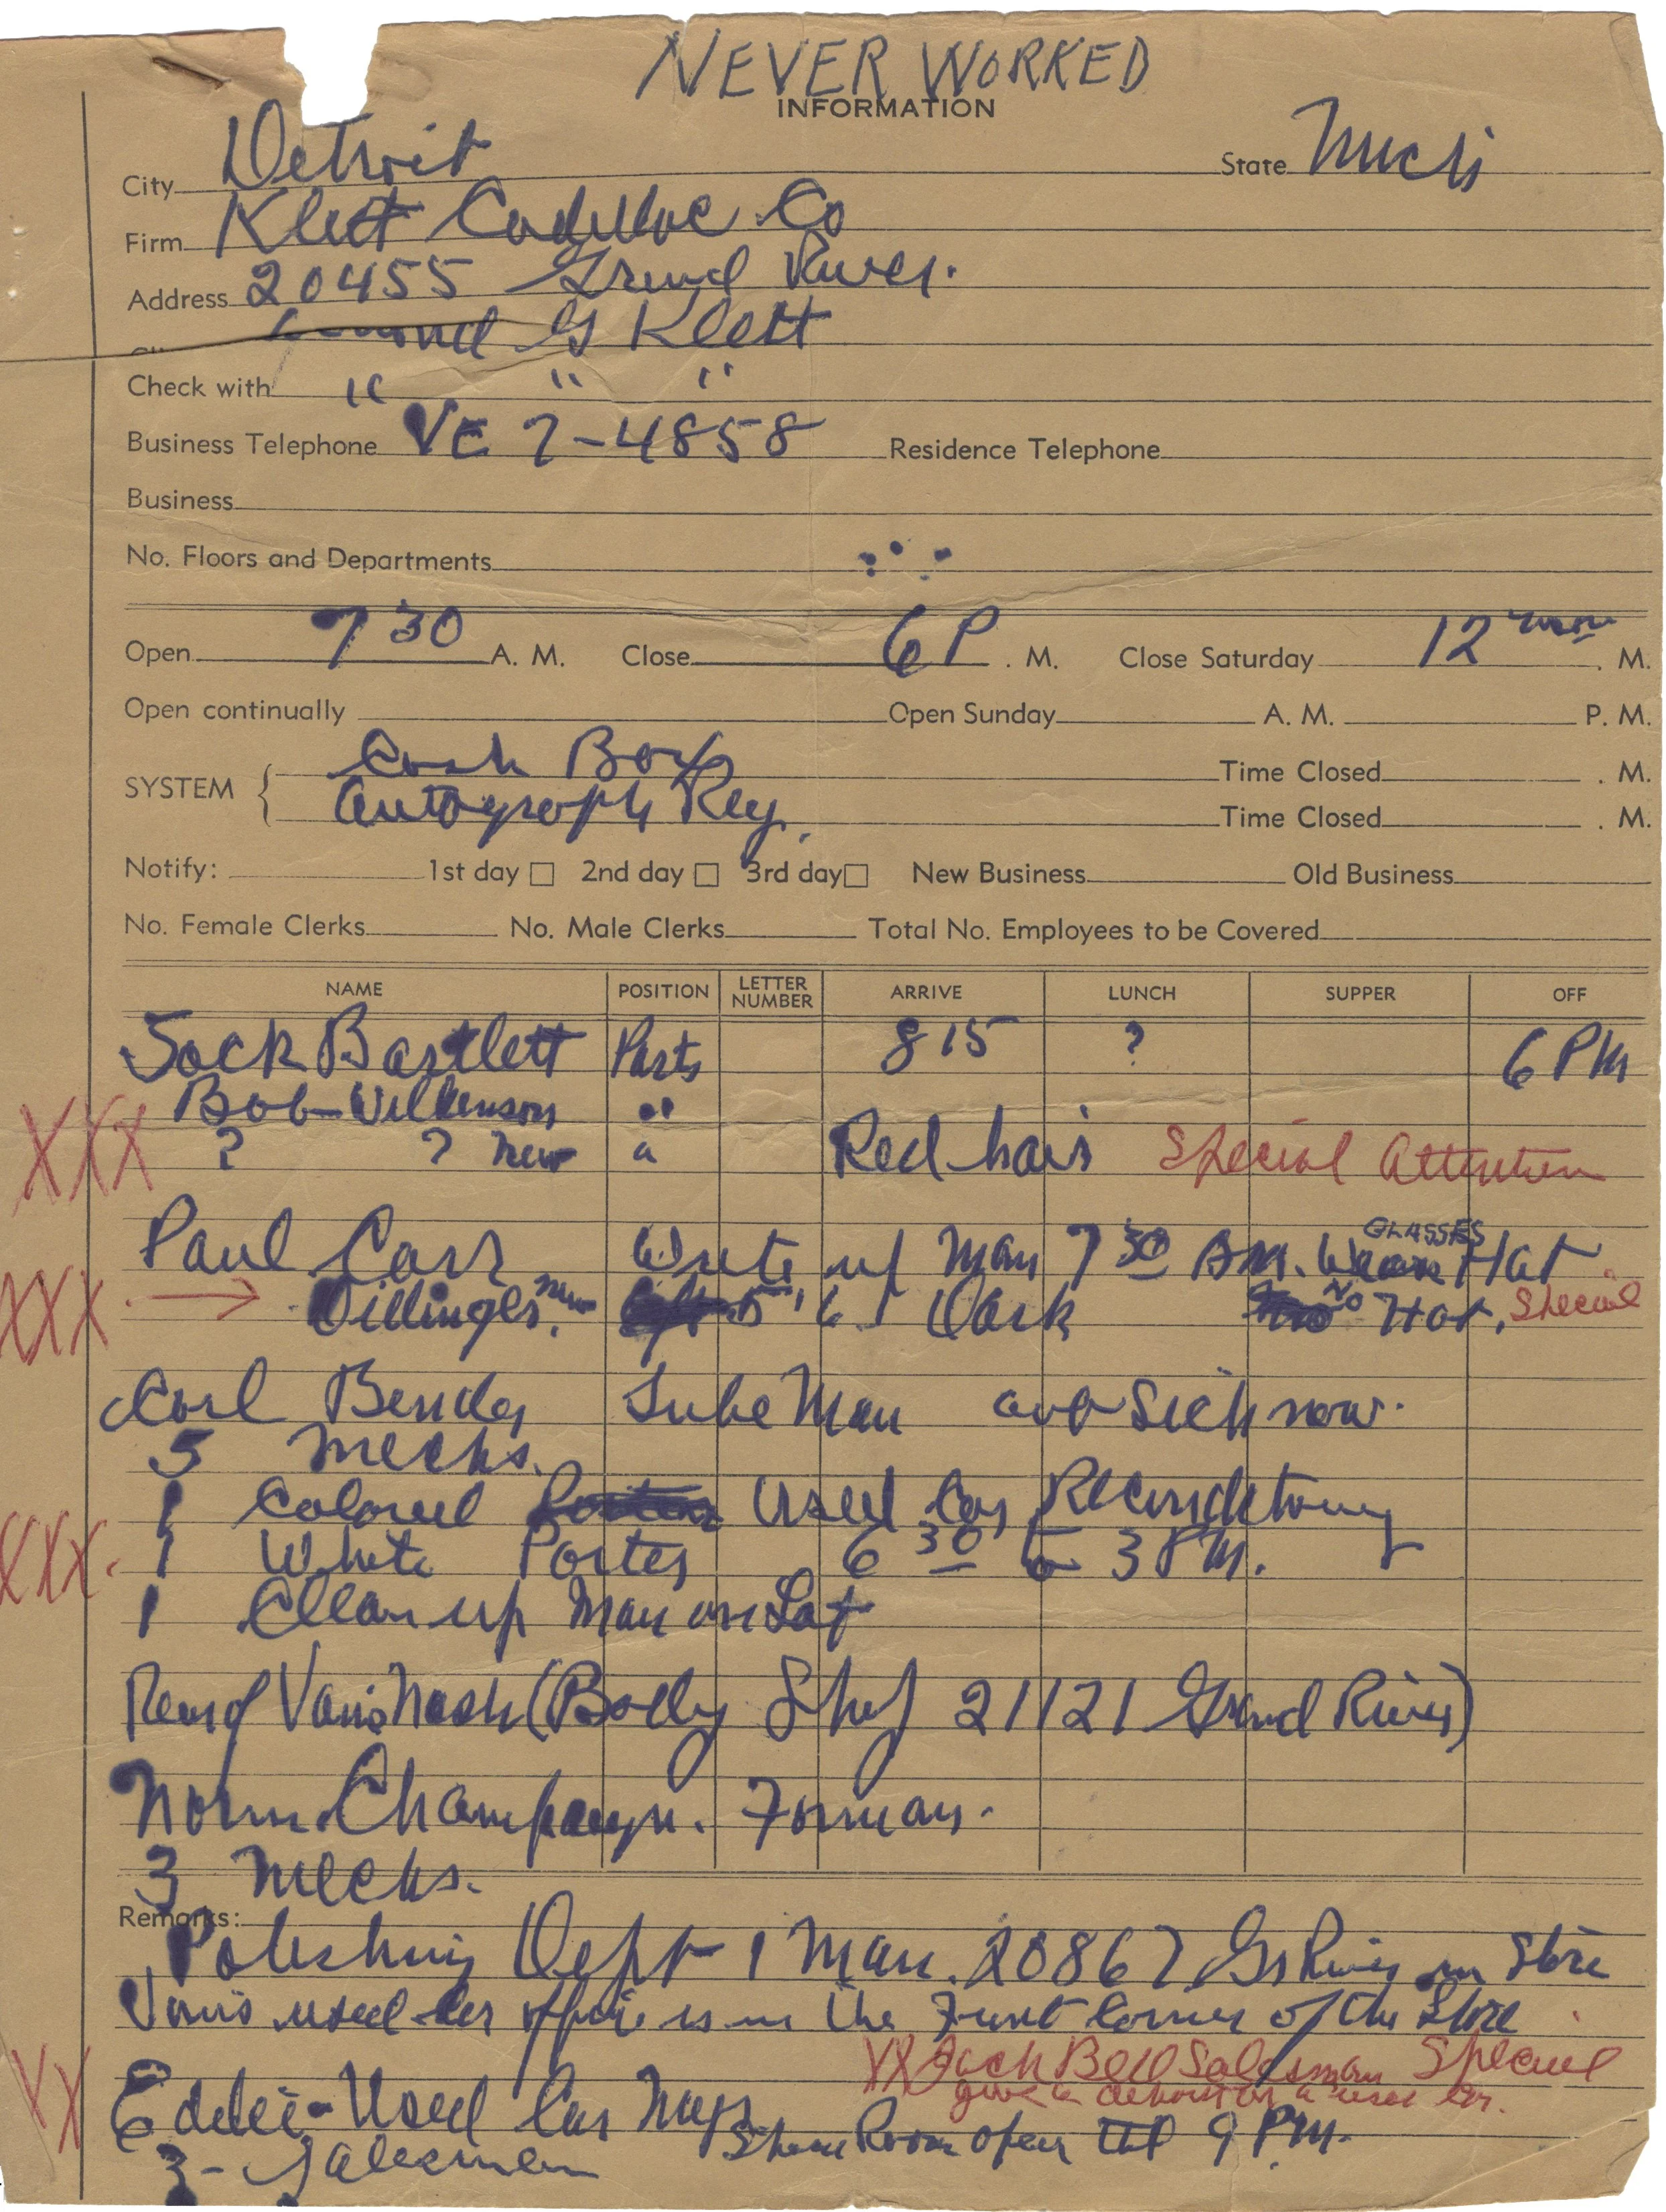 NEVER WORKED
INFORMATION
City Detroit State Mich
Firm Klett Cadillac Co
Address 20455 Grand River.
G Klett
Check with " " "
Business Telephone VE 7-4858 Residence Telephone
Business
No. Floors and Departments
Open 7 30 A. M. Close 6 P . M. Close Saturday 12 noon . M.
Open continually Open Sunday A. M. P. M.
SYSTEM { Cash Box Time Closed . M.
Autograph Reg. Time Closed . M.
Notify: 1st day □ 2nd day □ 3rd day □ New Business Old Business
No. Female Clerks No. Male Clerks Total No. Employees to be Covered
NAME POSITION LETTER NUMBER ARRIVE LUNCH SUPPER OFF
Jack Bartlett Parts 8 15 ? 6 PM
Bob Wilkenson "
XXX ? ? new " Red hair Special Attention
GLASSES
Paul Carr Write up Man 7 30 AM. Hat
XXX → Dillinger. new 5' 6" Dark No Hat. Special
Carl Bender Lube Man sick now.
5 mechs.
1 Colored Used Car Reconditoning
XXX. 1 White Porter 6 30 to 3 PM.
1 Clean up Man on Lot
Rear of Van's Nash (Body Shop 21121 Grand River)
Norm Champayn. Forman.
3 Mechs.
Remarks:
Polishing Dept 1 Man. 20867 Gr River in Store
Van's used car office is in the Front Corner of the Store
XX Jack Bell Salesman Special
give a deposit on a used car.
XX Eddie - Used Car Mgr.
Show Room open till 9 PM.
3 - Salesmen